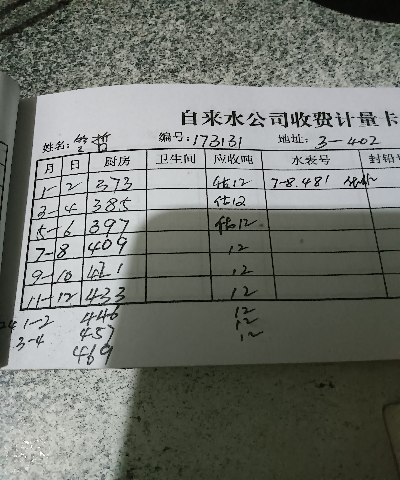 自来水公司收费计量卡
姓名: 编号: 173131 地址: 3-402
月 日 厨房 卫生间 应收吨 水表号 封铅号
1-2 373 估12 7-8.481
3-4 385 估12
5-6 397 估12
7-8 409 12
9-10 421 12
11-12 433 12
24 1-2 446 12
3-4 457 12
469 12